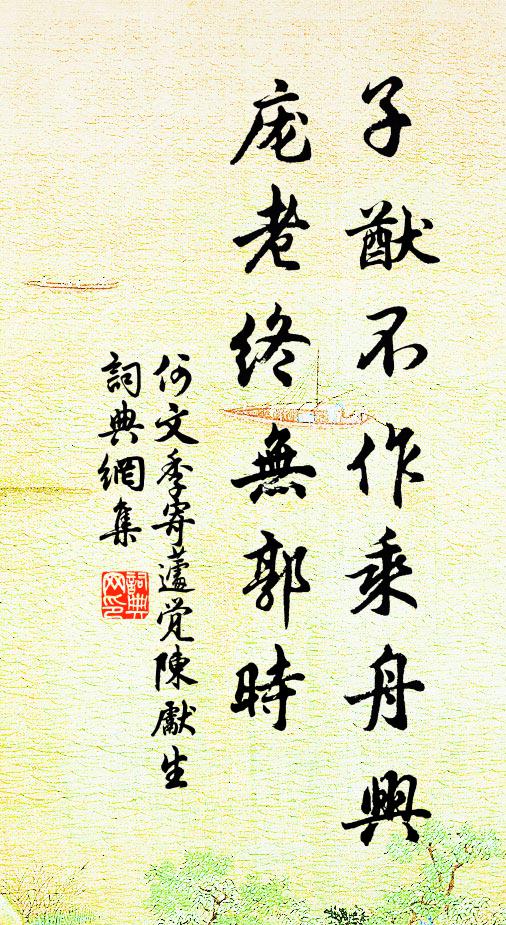 子猷不作乘舟興
庞老終無郭時
何文季寄陳獻生
詞典網集
詞典网印